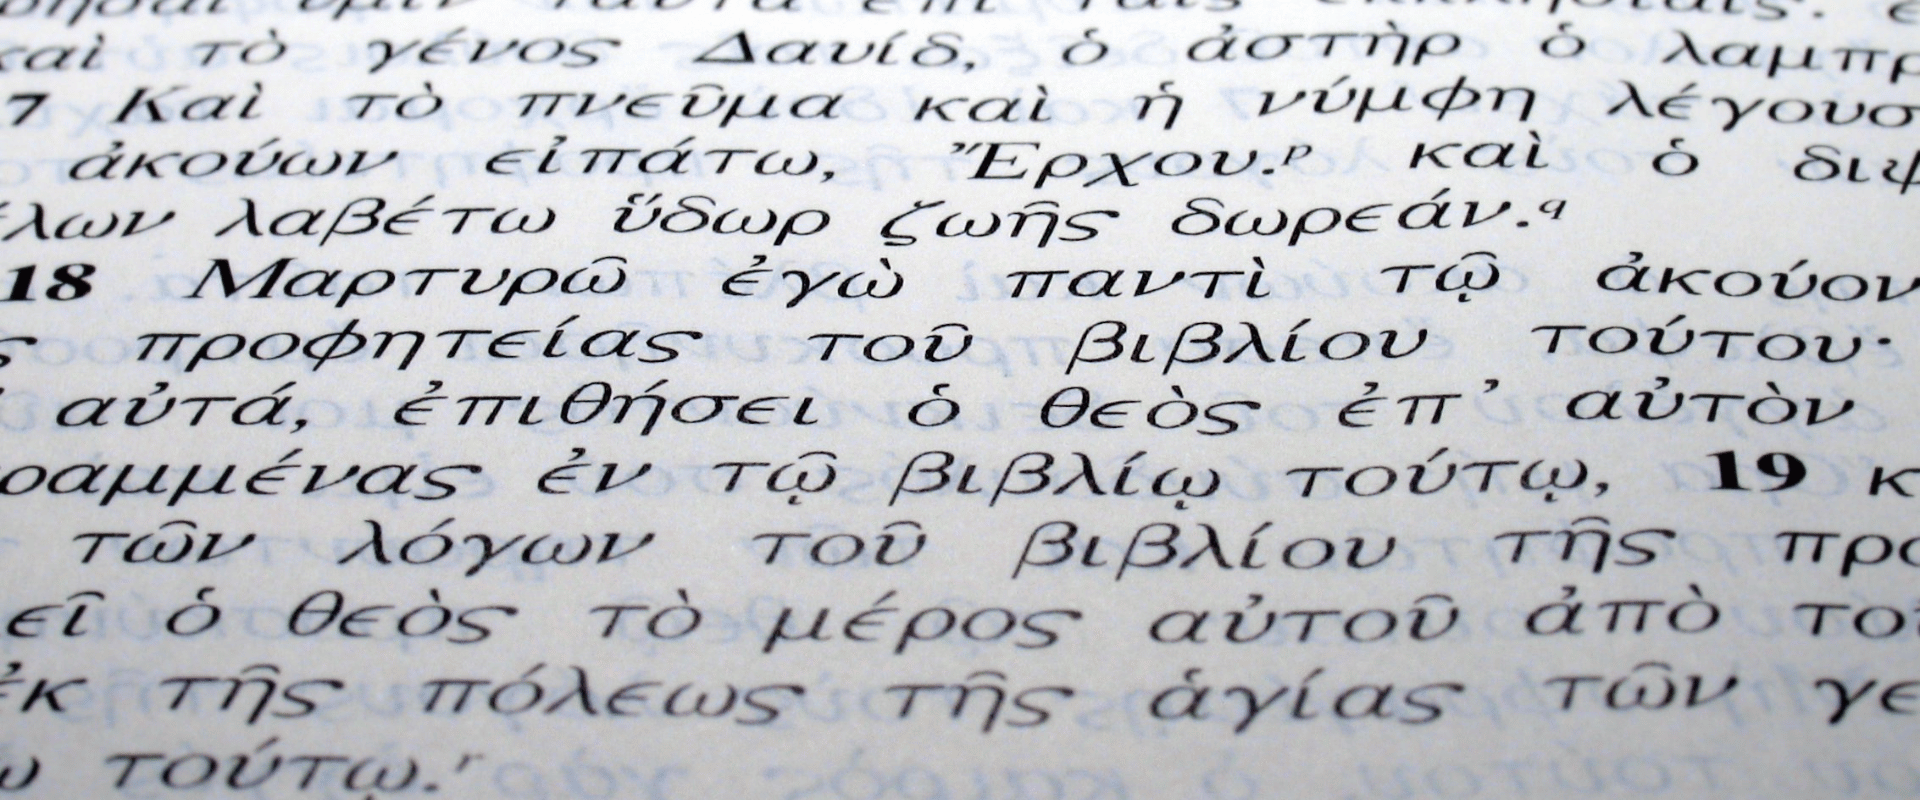 ὑμῖν ταῦτα ἐπὶ ταῖς ἐκκλησίαις.
καὶ τὸ γένος Δαυίδ, ὁ ἀστὴρ ὁ λαμπρ
7 Καὶ τὸ πνεῦμα καὶ ἡ νύμφη λέγουσ
ἀκούων εἰπάτω, Ἔρχου.ᵖ καὶ ὁ διψ
έλων λαβέτω ὕδωρ ζωῆς δωρεάν.q
18 Μαρτυρῶ ἐγὼ παντὶ τῷ ἀκούον
ς προφητείας τοῦ βιβλίου τούτου·
αὐτά, ἐπιθήσει ὁ θεὸς ἐπ’ αὐτὸν
ραμμένας ἐν τῷ βιβλίῳ τούτῳ, 19 κ
τῶν λόγων τοῦ βιβλίου τῆς προ
εῖ ὁ θεὸς τὸ μέρος αὐτοῦ ἀπὸ το
ἐκ τῆς πόλεως τῆς ἁγίας τῶν γε
ῳ τούτῳ.ʳ